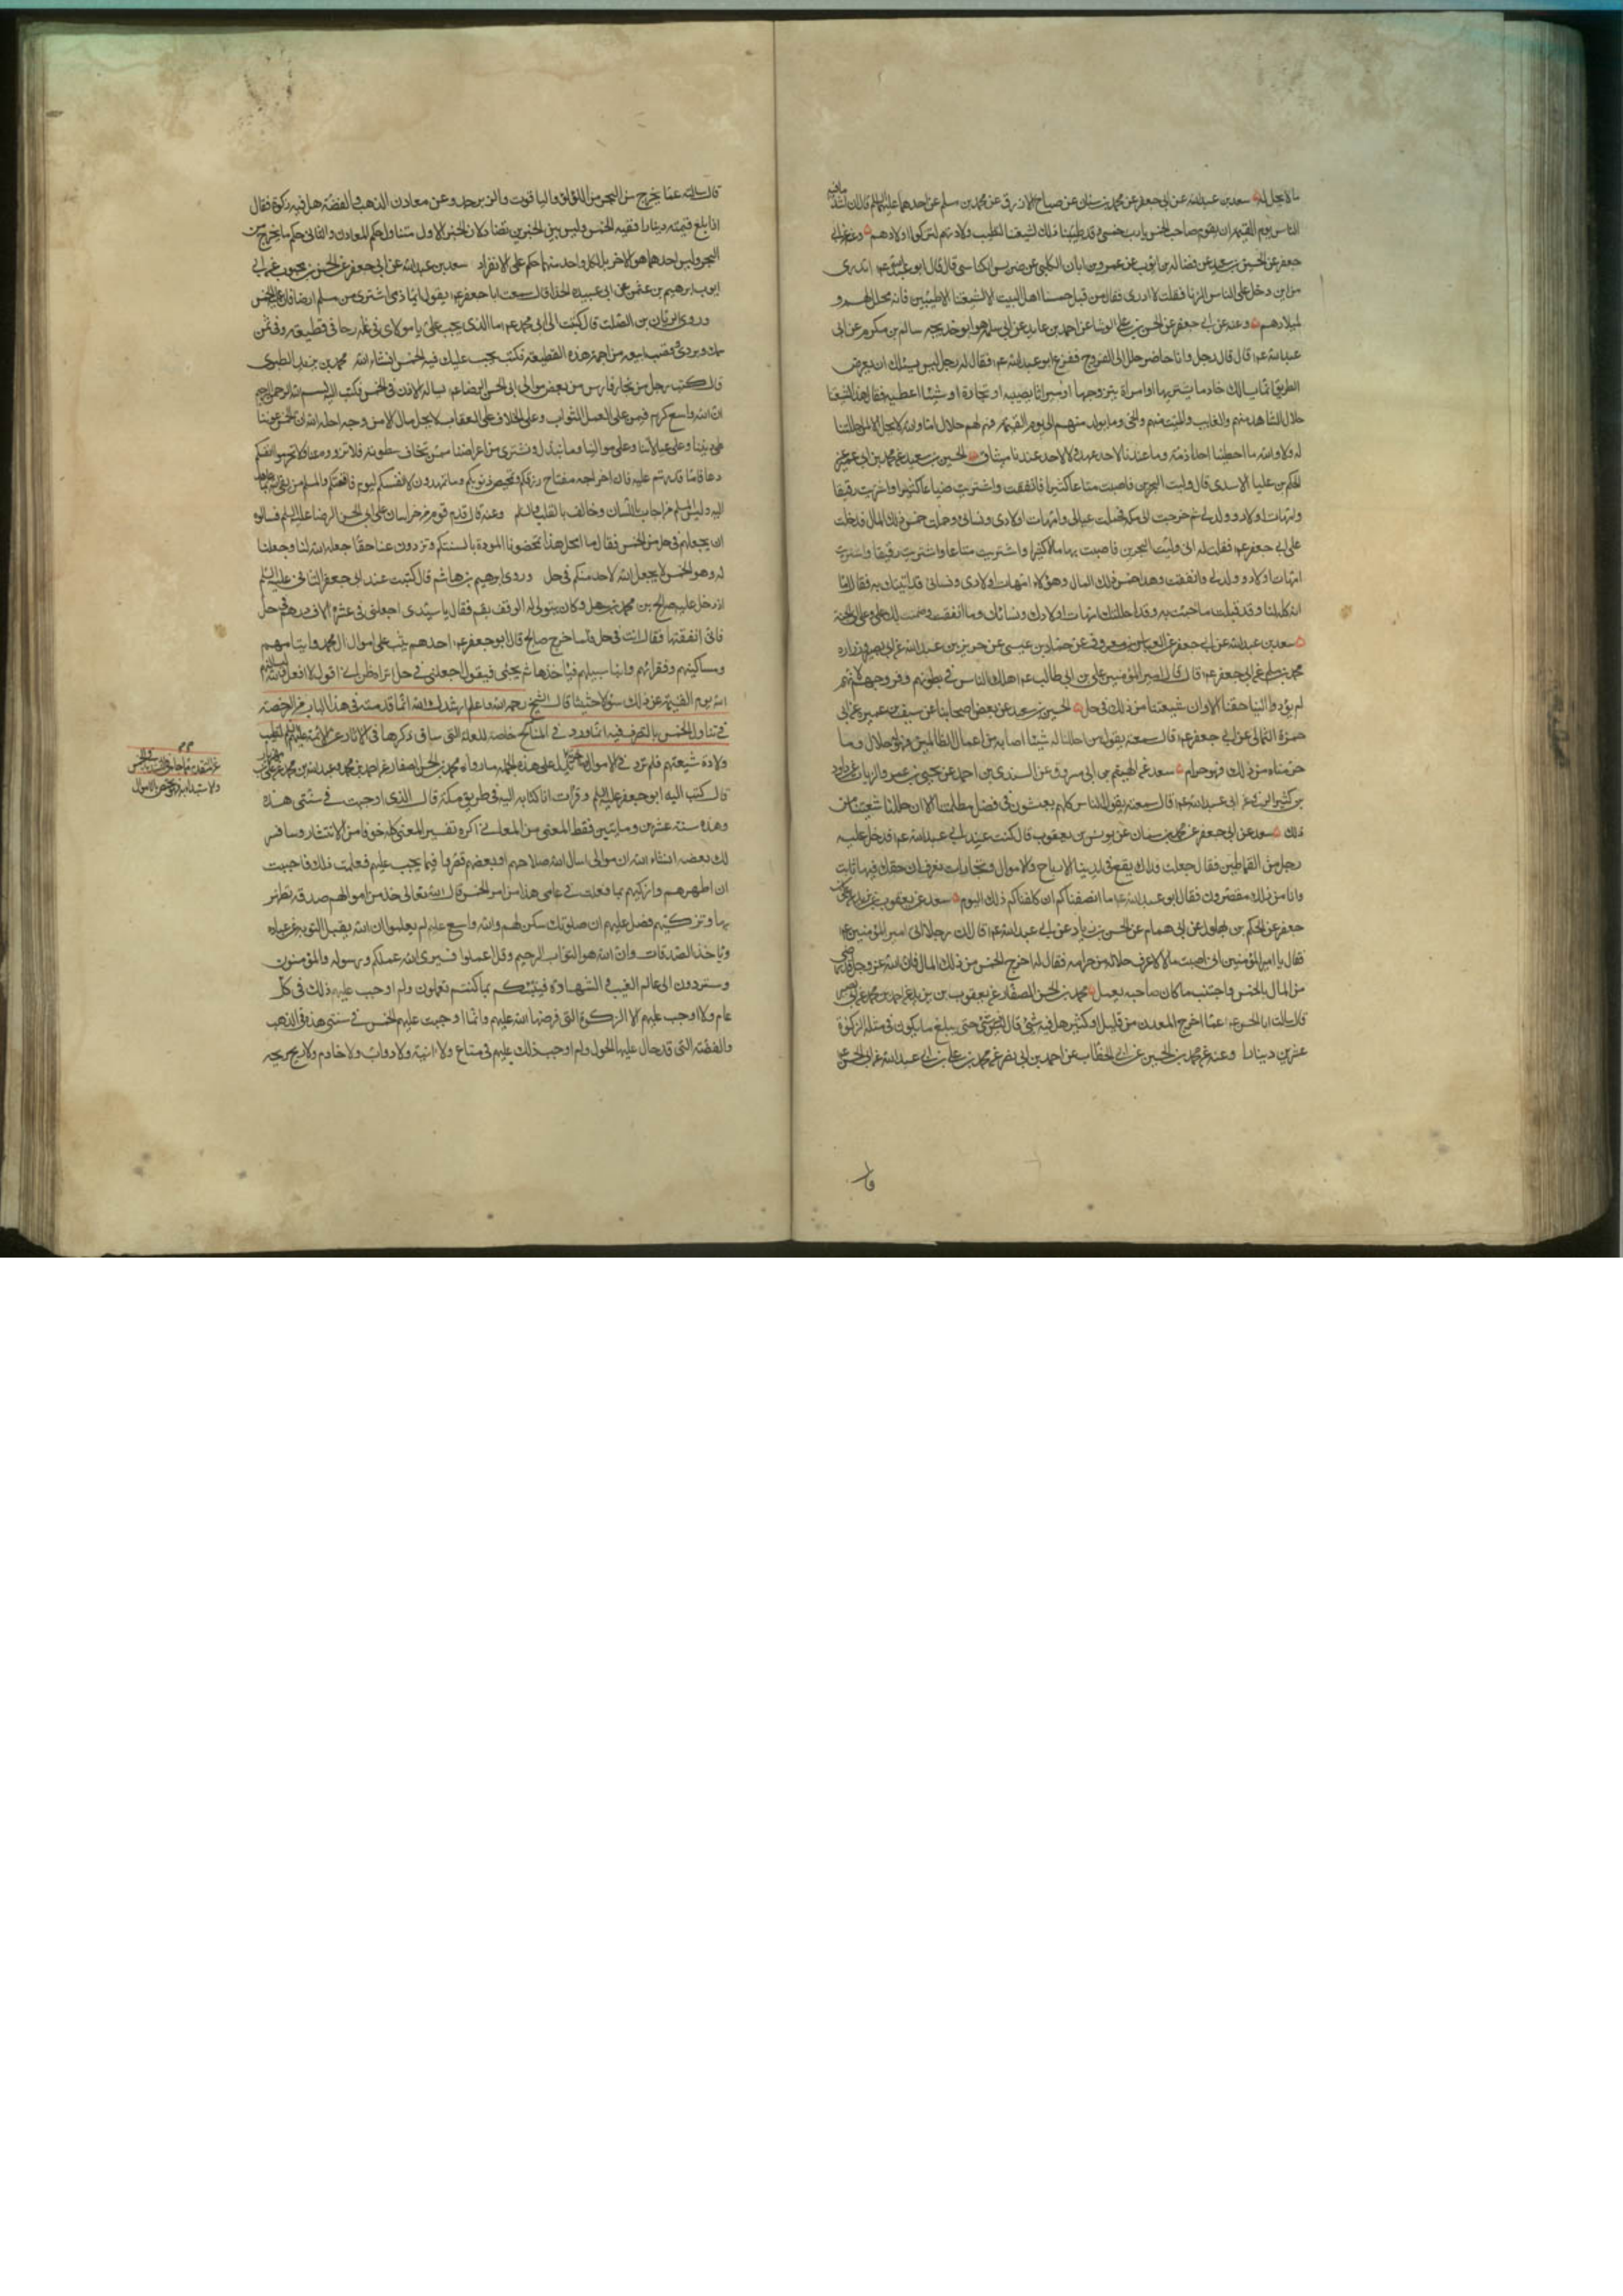 ما لا يحل له سعد بن عبد الله عن ابي جعفر عن محمد بن سنان عن صباح الازرق عن محمد بن مسلم عن احدهما عليهما السلم قال ان اشد ما فيه
الناس يوم القيمة ان يقوم صاحب الخمس فيقول يا رب خمسي وقد طيبنا ذلك لشيعتنا لتطيب ولادتهم ولتزكوا اولادهم وعنه عن ابي
جعفر عن الحسين بن سعيد عن فضالة بن ايوب عن عمرو بن ابان الكلبي عن ضريس الكناسي قال قال ابو عبد الله ع اتدري
من اين دخل على الناس الزنا فقلت لا ادري فقال من قبل خمسنا اهل البيت الا لشيعتنا الاطيبين فانه محلل لهم و
لميلادهم وعنه عن ابي جعفر عن الحسن بن علي الوشا عن احمد بن عايذ عن ابي سلمة وهو ابو خديجة سالم بن مكرم عن ابي
عبد الله ع قال قال رجل وانا حاضر حلل لي الفروج ففزع ابو عبد الله ع فقال له رجل ليس يسئلك ان يعترض
الطريق انما يسالك خادما يشتريها او امراة يتزوجها او ميراثا يصيبه او تجارة او شيئا اعطيه فقال هذا لشيعتنا
حلال الشاهد منهم والغايب والميت منهم والحي وما يولد منهم الى يوم القيمة فهو لهم حلال اما والله لا يحل الا لمن احللنا
له ولا والله ما اعطينا احدا ذمة وما عندنا لاحد عهد ولا لاحد عندنا ميثاق الحسين بن سعيد عن محمد بن ابي عمير عن
الحكم بن علبا الاسدي قال وليت البحرين فاصبت مالا كثيرا فانفقت واشتريت ضياعا كثيرة واشتريت رقيقا
وامهات اولاد وولد لي ثم خرجت الى مكة فحملت عيالي وامهات اولادي ونسائي وحملت خمس ذلك المال فدخلت
على ابي جعفر ع فقلت له اني وليت البحرين فاصبت بها مالا كثيرا واشتريت متاعا واشتريت رقيقا واشتريت
امهات اولاد وولد لي وانفقت وهذا خمس ذلك المال وهؤلاء امهات اولادي ونسائي قد اتيتك به فقال اما
انه كله لنا وقد قبلت ما جئت به وقد احللتك من امهات اولادك ونسائك وما انفقت وضمنت لك علي وعلى ابي الجنة
سعد بن عبد الله عن ابي جعفر عن العباس بن معروف عن حماد بن عيسى عن حريز بن عبد الله عن ابي بصير وزرارة
محمد بن مسلم عن ابي جعفر ع قال قال امير المؤمنين علي بن ابي طالب ع هلك الناس في بطونهم وفروجهم لانهم
لم يؤدوا الينا حقنا الا وان شيعتنا من ذلك في حل الحسين بن سعيد عن بعض اصحابنا عن سيف بن عميرة عن ابي
حمزة الثمالي عن ابي جعفر ع قال سمعته يقول من احللنا له شيئا اصابه من اعمال الظالمين فهو له حلال وما
حرمناه من ذلك فهو حرام سعد عن الهيثم بن ابي مسروق عن السندي بن احمد عن يحيى بن عمرو الزيات عن داود
بن كثير الرقي عن ابي عبد الله ع قال سمعته يقول الناس كلهم يعيشون في فضل مظلمتنا الا انا حللنا شيعتنا من
ذلك سعد عن ابي جعفر عن محمد بن سنان عن يونس بن يعقوب قال كنت عند ابي عبد الله ع فدخل عليه
رجل من القماطين فقال جعلت فداك يقع في ايدينا الارباح والاموال وتجارات نعرف ان حقك فيها ثابت
وانا من ذلك مقصرون فقال ابو عبد الله ع ما انصفناكم ان كلفناكم ذلك اليوم سعد عن يعقوب بن يزيد عن علي بن
جعفر عن الحكم بن بهلول عن ابي همام عن الحسن بن زياد عن ابي عبد الله ع قال ان رجلا اتى امير المؤمنين ع
فقال يا امير المؤمنين اني اصبت مالا لا اعرف حلاله من حرامه فقال له اخرج الخمس من ذلك المال فان الله عز وجل قد رضي
من المال بالخمس واجتنب ما كان صاحبه يعمل محمد بن الحسن الصفار عن يعقوب بن يزيد عن احمد بن محمد بن ابي نصر
قال سالت ابا الحسن ع عما اخرج المعدن من قليل او كثير هل فيه شئ قال ليس فيه شئ حتى يبلغ ما يكون في مثله الزكوة
عشرين دينارا وعنه عن محمد بن الحسين بن ابي الخطاب عن احمد بن ابي نصر عن محمد بن علي بن ابي عبد الله عن ابي الحسن ع
قال سالته عما يخرج من البحر من اللؤلؤ والياقوت والزبرجد وعن معادن الذهب والفضة هل فيه زكوة فقال
اذا بلغ قيمته دينارا ففيه الخمس وليس بين الخبرين تضاد لان الخبر الاول متناول حكم المعادن والثاني حكم ما يخرج من
البحر وليس احدهما هو الاخر بل لكل واحد منهما حكم على الانفراد سعد بن عبد الله عن ابي جعفر عن الحسن بن محبوب عن ابي
ايوب ابرهيم بن عثمن عن ابي عبيدة الحذا قال سمعت ابا جعفر ع يقول ايما ذمي اشترى من مسلم ارضا فان عليه الخمس
وروى الريان بن الصلت قال كتبت الى ابي محمد ع ما الذي يجب علي يا مولاي في غلة رحا في قطيعة لي وفي ثمن
سمك وبردي وقصب ابيعه من اجمة هذه القطيعة فكتب يجب عليك فيه الخمس انشاء الله محمد بن يزيد الطبري
قال كتب رجل من تجار فارس من بعض موالي ابي الحسن الرضا ع يساله الاذن في الخمس فكتب اليه بسم الله الرحمن الرحيم
ان الله واسع كريم ضمن على العمل الثواب وعلى الخلاف العقاب لا يحل مال الا من وجه احله الله ان الخمس عوننا
على ديننا وعلى عيالاتنا وعلى موالينا وما نبذل ونشتري من اعراضنا ممن تخاف سطوته فلا تزووه عنا ولا تحرموا انفسكم
دعانا ما قدرتم عليه فان اخراجه مفتاح رزقكم وتمحيص ذنوبكم وما تمهدون لانفسكم ليوم فاقتكم والمسلم من يفي لله بما عهد
اليه وليس المسلم من اجاب باللسان وخالف بالقلب والسلم وعنه قال قدم قوم من خراسان على ابي الحسن الرضا عليه السلم فسالوه
ان يجعلهم في حل من الخمس فقال ما امحل هذا تمحضونا المودة بالسنتكم وتزوون عنا حقا جعله الله لنا وجعلنا
له وهو الخمس لا يجعل الله لاحد منكم في حل وروى ابرهيم بن هاشم قال كنت عند ابي جعفر الثاني عليه السلم
اذ دخل عليه صالح بن محمد بن سهل وكان يتولى له الوقف بقم فقال يا سيدي اجعلني في عشرة الاف درهم في حل
فاني انفقتها فقال انت في حل فلما خرج صالح قال ابو جعفر ع احدهم يثب على اموال ال محمد وايتامهم
ومساكينهم وفقرائهم وابناء سبيلهم فياخذها ثم يجئ فيقول اجعلني في حل اتراه ظن اني اقول لا افعل والله ليسالنهم
الله يوم القيمة عن ذلك سؤلا حثيثا قال الشيخ رحمه الله واعلم ارشدك الله ان ما قدمته في هذا الباب من الرخصة
في تناول الخمس بالتصرف فيه انما ورد في المناكح خاصة للعلة التي سلف ذكرها في الاثار عن الائمة عليهم السلم لتطيب
ولادة شيعتهم فلم ترد في الاموال يدل على هذه الجملة ما رواه محمد بن الحسن الصفار عن احمد بن محمد وعبد الله بن محمد عن علي بن
قال كتب اليه ابو جعفر عليه السلم وقرات انا كتابه اليه في طريق مكة قال الذي اوجبت في سنتي هذه
وهذه سنة عشرين ومايتين فقط لمعنى من المعاني اكره تفسير المعنى كله خوفا من الانتشار وسافسر
لك بعضه انشاء الله ان موالي اسال الله صلاحهم او بعضهم قصروا فيما يجب عليهم فعلمت ذلك فاحببت
ان اطهرهم وازكيهم بما فعلت في عامي هذا من امر الخمس قال الله تعالى خذ من اموالهم صدقة تطهرهم
بها وتزكيهم وصل عليهم ان صلوتك سكن لهم والله واسع عليم الم يعلموا ان الله يقبل التوبة عن عباده
وياخذ الصدقات وان الله هو التواب الرحيم وقل اعملوا فسيرى الله عملكم ورسوله والمؤمنون
وستردون الى عالم الغيب والشهادة فينبئكم بما كنتم تعملون ولم اوجب عليهم ذلك في كل
عام ولا اوجب عليهم الا الزكوة التي فرضها الله عليهم وانما اوجبت عليهم الخمس في سنتي هذه في الذهب
والفضة التي قد حال عليها الحول ولم اوجب ذلك عليهم في متاع ولا انية ولا دواب ولا خادم ولا ربح ربحه